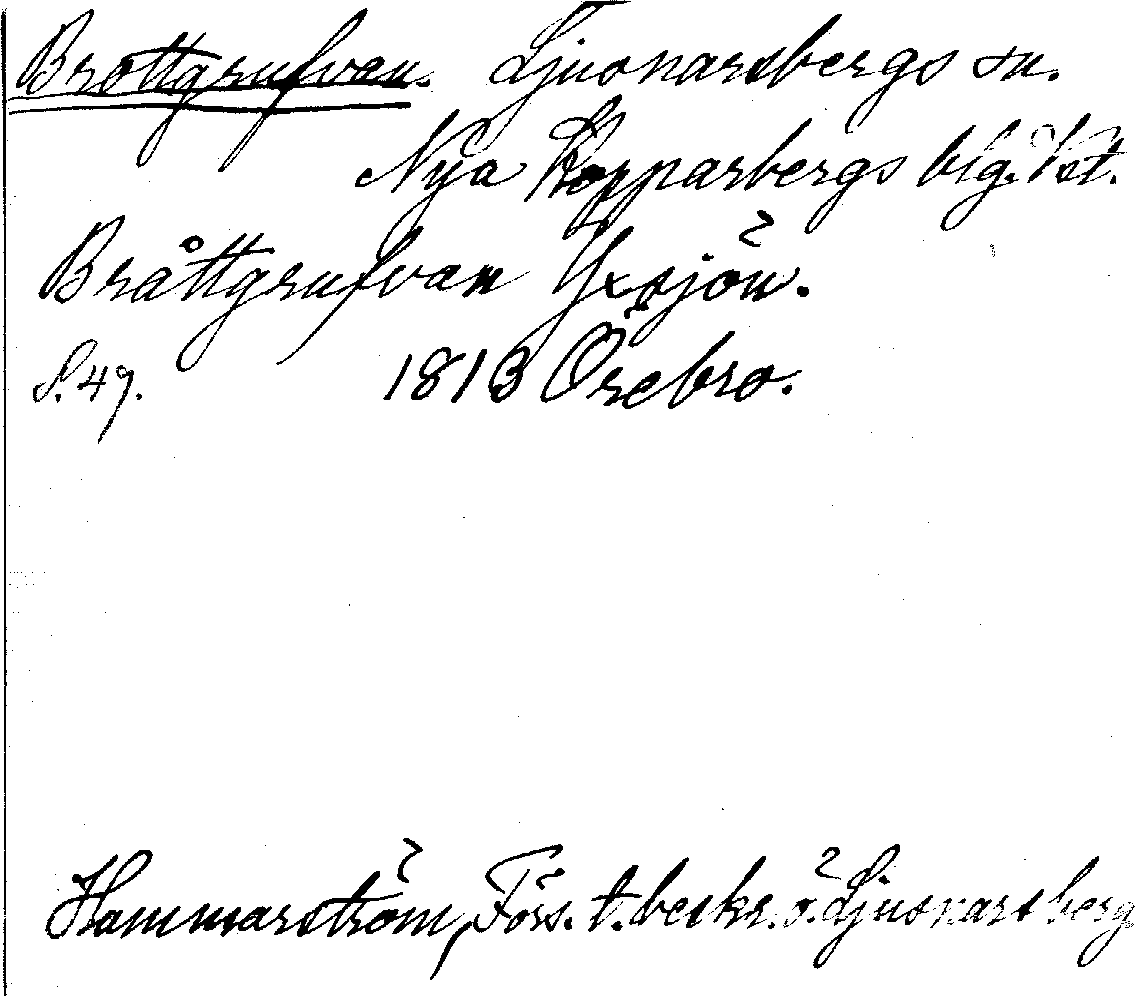 Brottgrufvan. Ljusnarsbergs sn.
Nya Kopparbergs blg. Vst.
Bråttgrufvan Yxsjön.
S. 49. 1813 Örebro.
Hammarström, Förs. t. beskr. ö. Ljusnarsberg